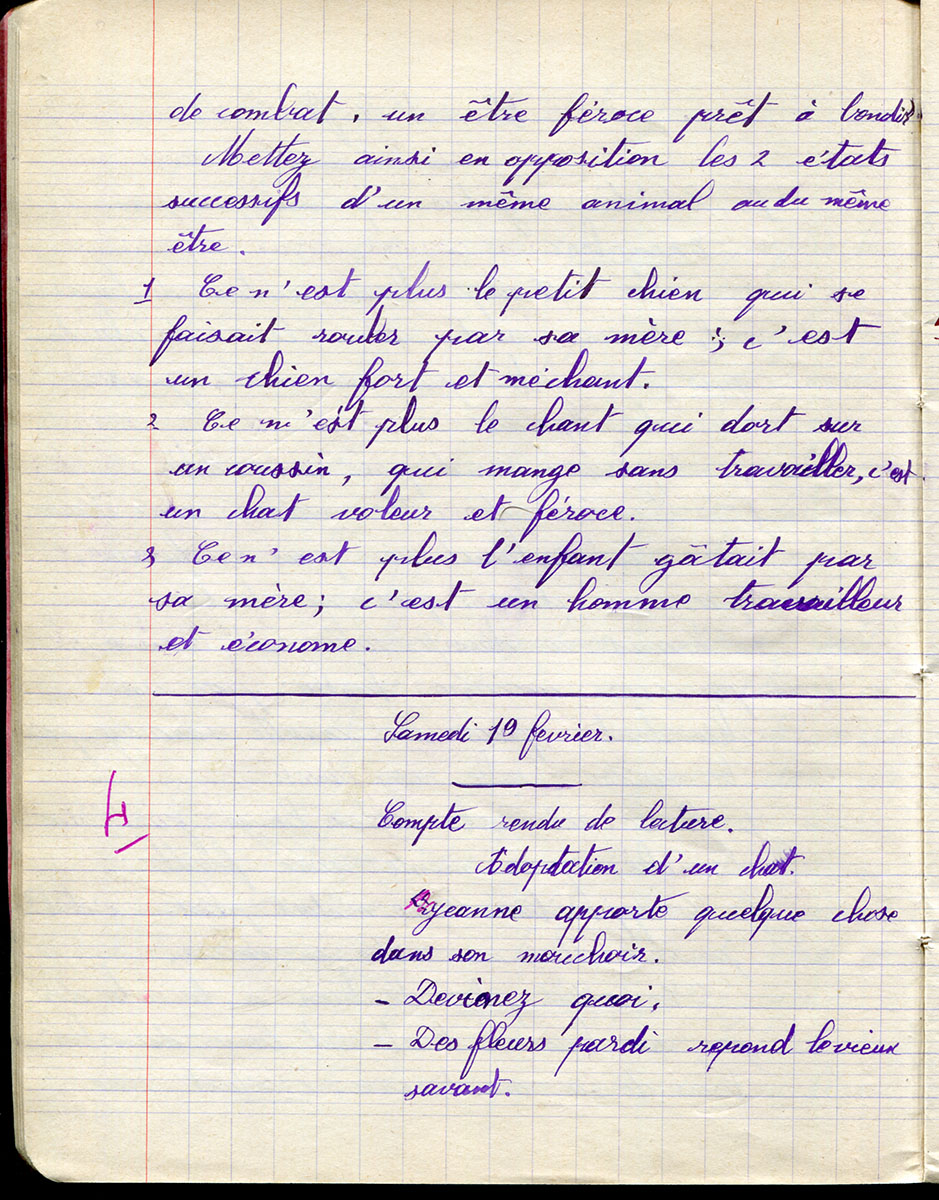 de combat, un être féroce prêt à bondir
Mettez ainsi en opposition les 2 états
successifs d'un même animal ou du même
être.
1 Ce n'est plus le petit chien qui se
faisait rouler par sa mère ; c'est
un chien fort et méchant.
2 Ce n'est plus le chant qui dort sur
un coussin, qui mange sans travailler, c'est
un chat voleur et féroce.
3 Ce n'est plus l'enfant gâtait par
sa mère ; c'est un homme travailleur
et économe.
Samedi 19 fevrier.
Compte rendu de lecture.
Adoptation d'un chat.
Jeanne apporte quelque chose
dans son mouchoir.
- Devinez quoi.
- Des fleurs pardi repond le vieux
savant.